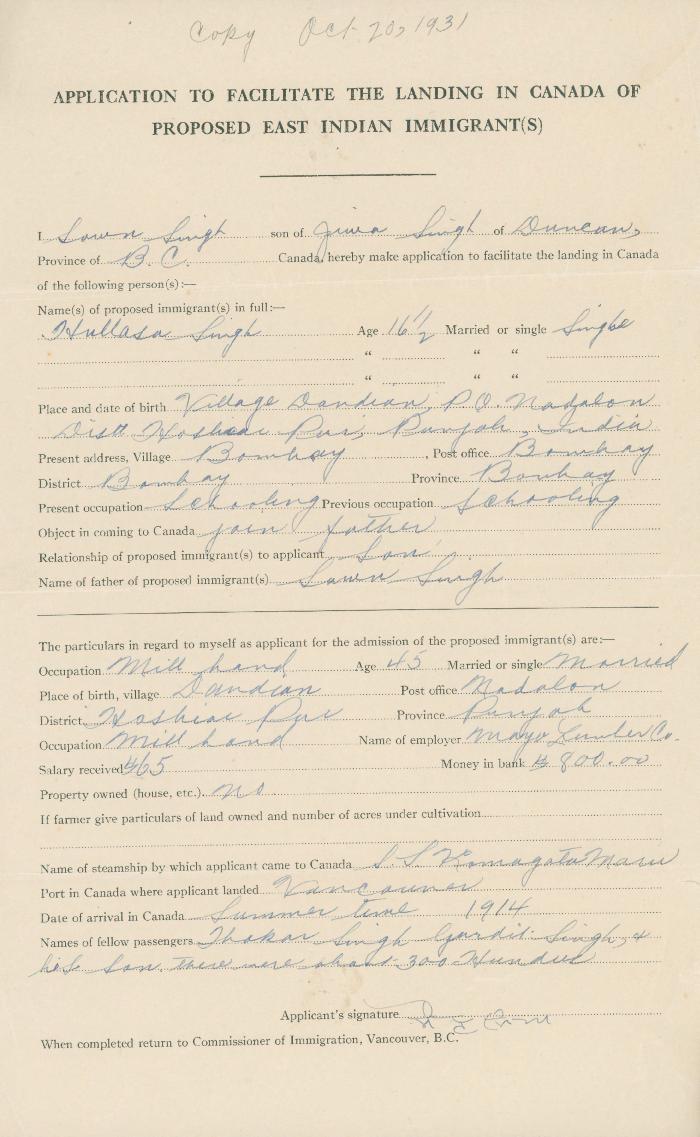 Copy Oct. 20, 1931
APPLICATION TO FACILITATE THE LANDING IN CANADA OF
PROPOSED EAST INDIAN IMMIGRANT(S)
I Sown Singh son of Jiwa Singh of Duncan,
Province of B. C. Canada, hereby make application to facilitate the landing in Canada
of the following person(s):—
Name(s) of proposed immigrant(s) in full:—
Hullasa Singh Age 16½ Married or single Single
" " "
" " "
Place and date of birth Village Dandian, P.O. Nadalon
Distt Hoshiar Pur, Punjab, India
Present address, Village Bombay, Post office Bombay
District Bombay Province Bombay
Present occupation Schooling Previous occupation Schooling
Object in coming to Canada join father
Relationship of proposed immigrant(s) to applicant Son
Name of father of proposed immigrant(s) Sown Singh
The particulars in regard to myself as applicant for the admission of the proposed immigrant(s) are:—
Occupation Mill hand Age 45 Married or single Married
Place of birth, village Dandian Post office Nadalon
District Hoshiar Pur Province Punjab
Occupation Mill hand Name of employer Mayo Lumber Co.
Salary received $65 Money in bank $ 800.00
Property owned (house, etc.) no
If farmer give particulars of land owned and number of acres under cultivation
Name of steamship by which applicant came to Canada S S Komagata Maru
Port in Canada where applicant landed Vancouver
Date of arrival in Canada Summer time 1914
Names of fellow passengers Thakar Singh Gurdit Singh, &
his son. there were about 300 Hundus
Applicant's signature
When completed return to Commissioner of Immigration, Vancouver, B.C.